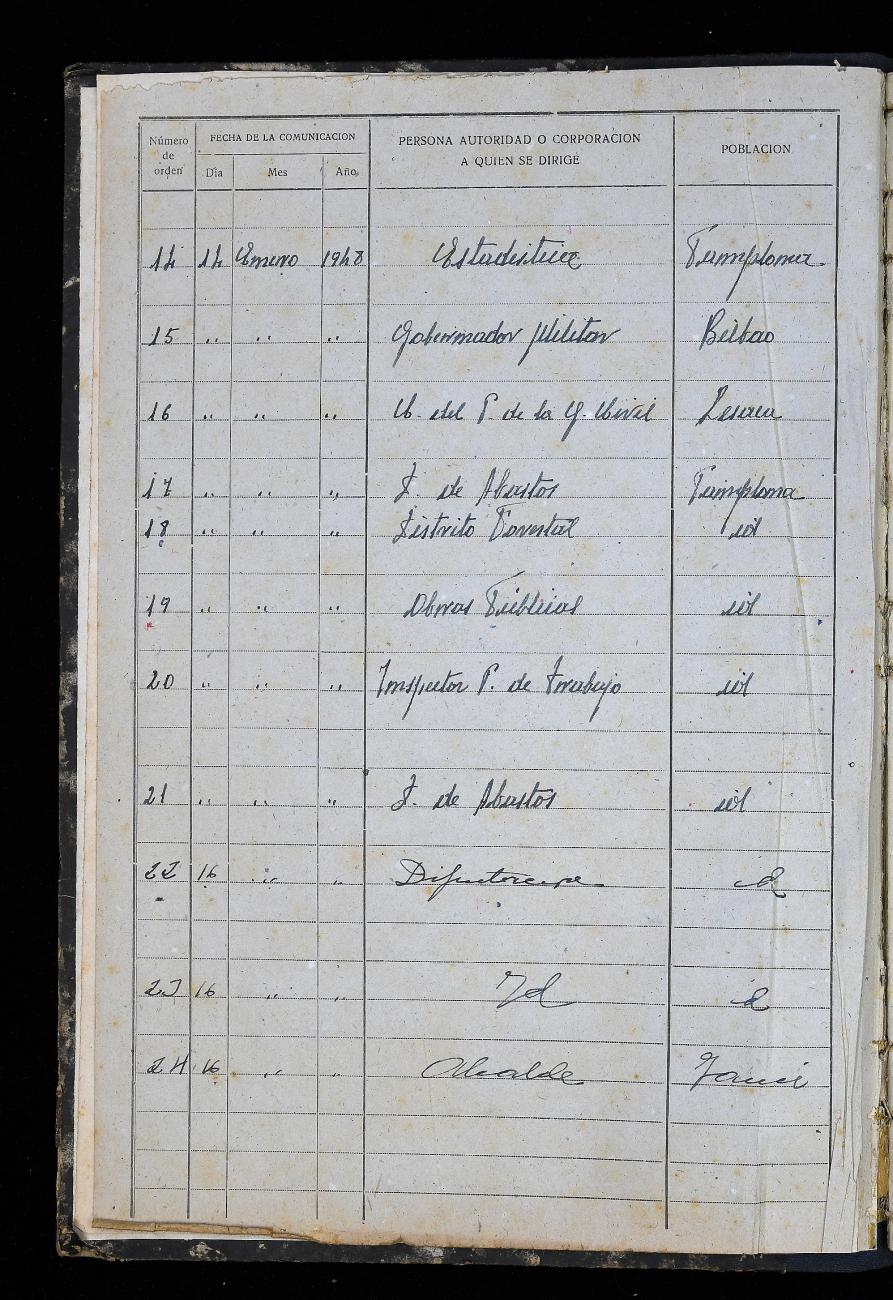 Número de orden FECHA DE LA COMUNICACION PERSONA AUTORIDAD O CORPORACION A QUIEN SE DIRIGE POBLACION
Día Mes Año
14 14 Enero 1948 Estadistica Pamplona
15 " " " Gobernador Militar Bilbao
16 " " " C. del P. de la G. Civil Lesaca
17 " " " D. de Abastos Pamplona
18 " " " Distrito Forestal id
19 " " " Obras Públicas id
20 " " " Inspector P. de Trabajo id
21 " " " D. de Abastos id
22 16 " " id
23 16 " " Id id
24 16 " " Alcalde Yanci